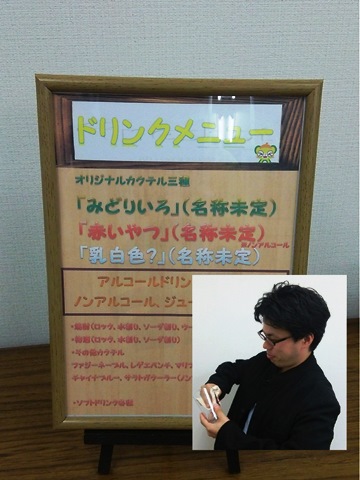 ドリンクメニュー
オリジナルカクテル三種
「みどりいろ」(名称未定)
「赤いやつ」(名称未定)
※ノンアルコール
「乳白色?」(名称未定)
アルコールドリン
ノンアルコール、ジュー
(ロック、水割り、ソーダ割り、ウー
(ロック、水割り、ソーダ割り)
・その他カクテル
ファジーネーブル、レゲエパンチ、マリブ
チャイナブルー、サラトガクーラー(ノン
・ソフトドリンク各種